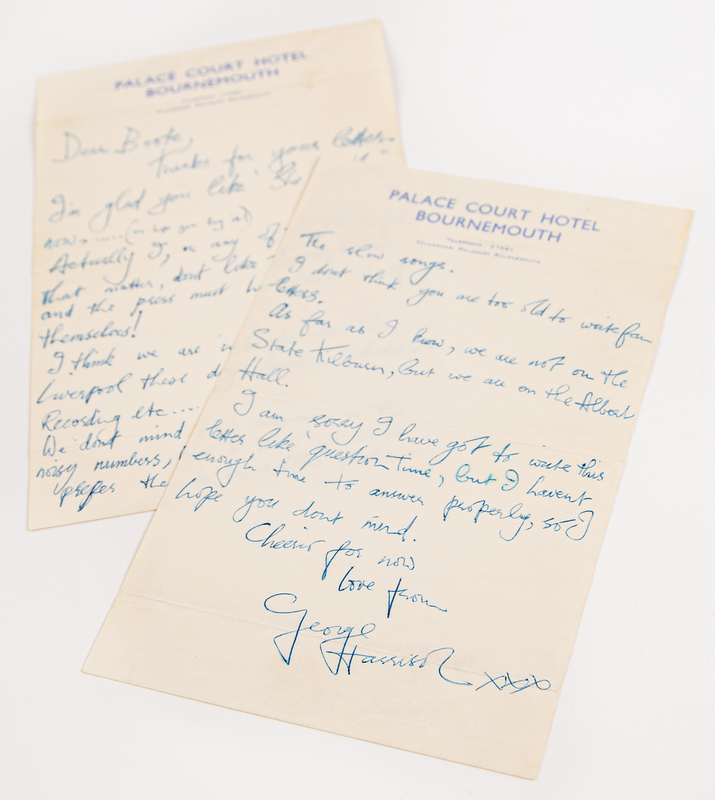 PALACE COURT HOTEL
BOURNEMOUTH
Dear
Thanks for your letter.
I'm glad you like
now
Actually I, or any of
that matter, dont like
and the press must
themselves!
I think we are in
Liverpool these
Recording etc....
We dont mind
noisy numbers,
prefer the
PALACE COURT HOTEL
BOURNEMOUTH
The slow songs.
I dont think you are too old to write fan
letters.
As far as I know, we are not on the
State Kilburn, but we are on the Albert
Hall.
I am sorry I have got to write this
letter like 'question time, but I havent
enough time to answer properly, so I
hope you dont mind.
Cheerio for now
love from
George
Harrison xxx